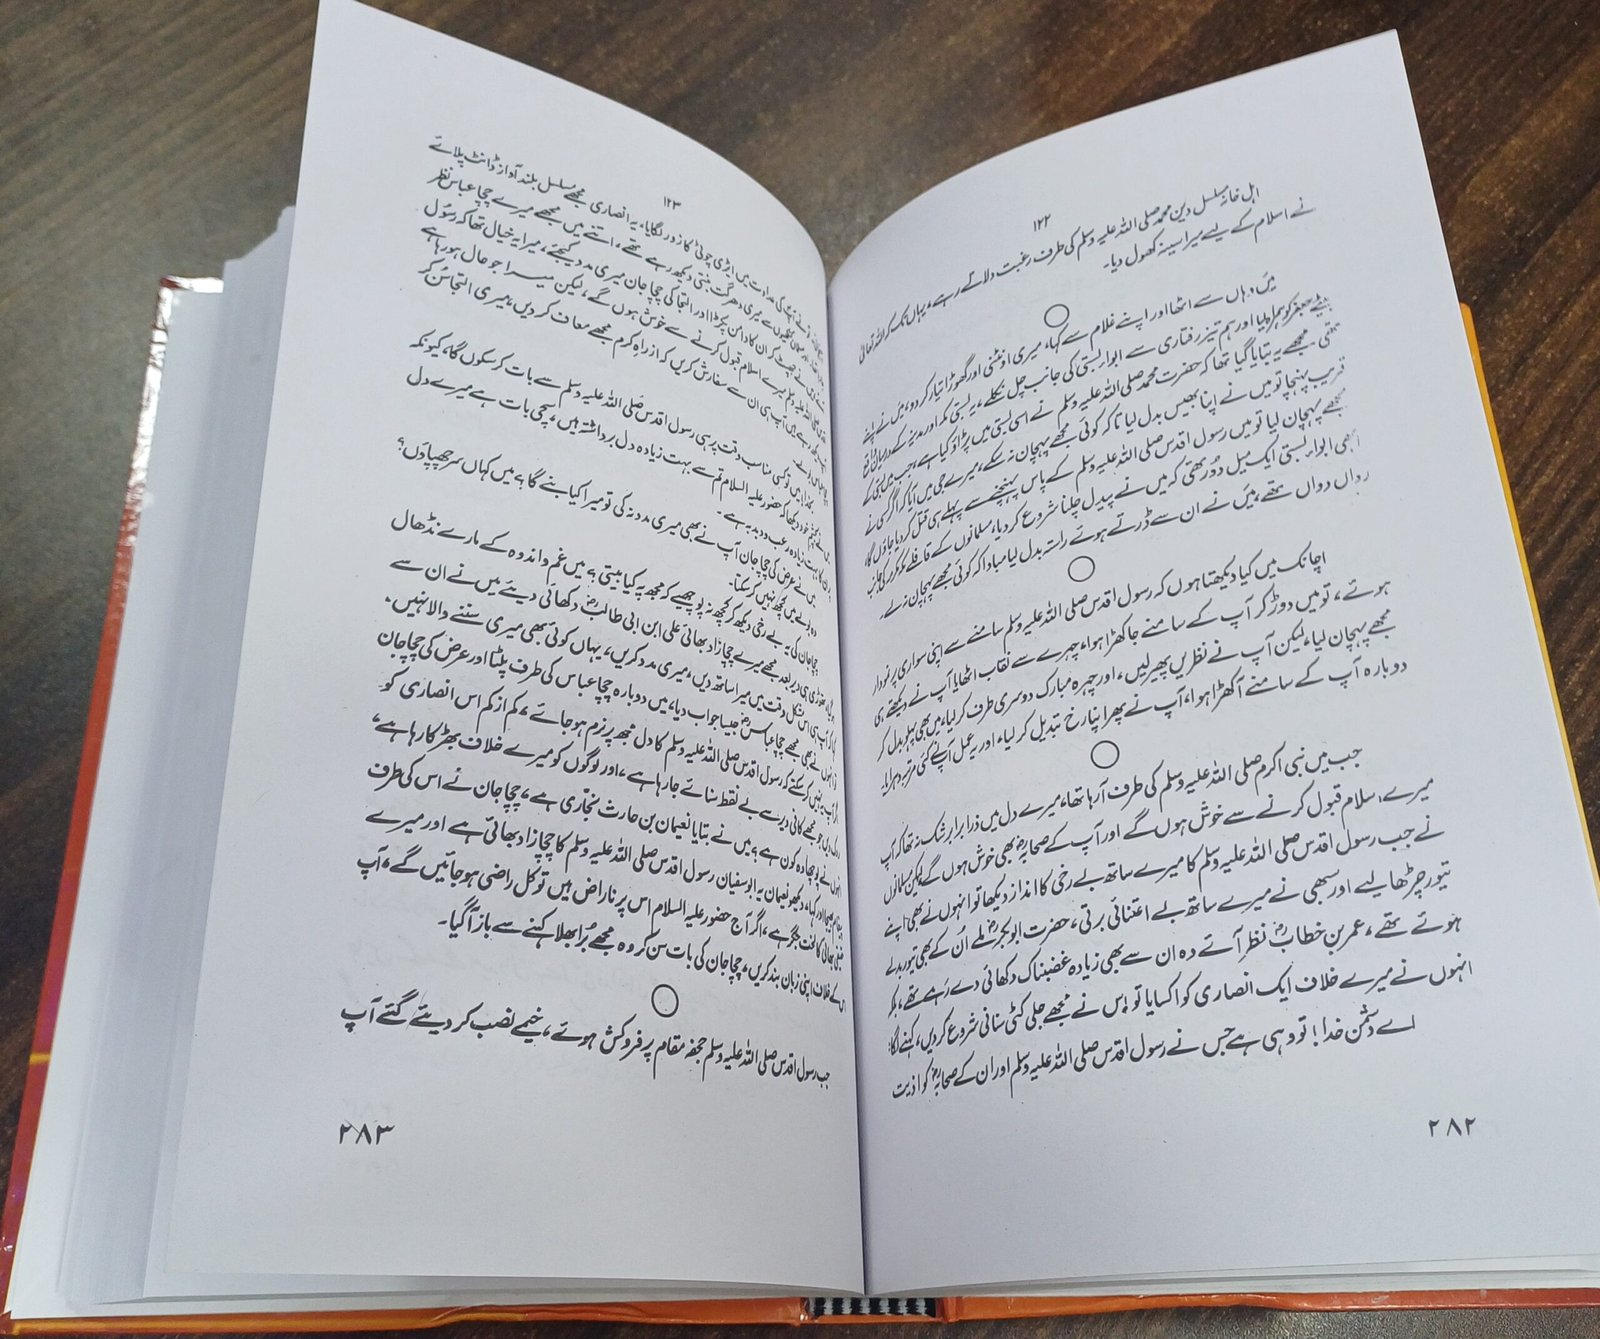 ۱۲۲
اہل خانہ مسلسل دین محمد صلی اللہ علیہ وسلم کی طرف رغبت دلاتے رہے، یہاں تک کہ اللہ تعالیٰ
نے اسلام کے لیے میرا سینہ کھول دیا۔
میں وہاں سے اٹھا اور اپنے غلام سے کہا، میری اونٹنی اور گھوڑا تیار کر دو، میں نے اپنے
بیٹے جعفر کو ہمراہ لیا اور ہم تیز رفتاری سے ابواء بستی کی جانب چل نکلے، یہ بستی مکہ اور مدینہ کے درمیان واقع
تھی مجھے یہ بتایا گیا تھا کہ حضرت محمد صلی اللہ علیہ وسلم نے اسی بستی میں پڑاؤ کیا ہے، جب میں بستی کے
قریب پہنچا تو میں نے اپنا بھیس بدل لیا تاکہ کوئی مجھے پہچان نہ سکے، میرے جی میں آیا کہ اگر کسی نے
مجھے پہچان لیا تو میں رسول اقدس صلی اللہ علیہ وسلم کے پاس پہنچنے سے پہلے ہی قتل کر دیا جاؤں گا،
ابھی ابواء بستی ایک میل دور تھی کہ میں نے پیدل چلنا شروع کر دیا، مسلمانوں کے قافلے مکہ مکرمہ کی جانب
رواں دواں تھے، میں نے ان سے ڈرتے ہوئے راستہ بدل لیا مبادا کہ کوئی مجھے پہچان نہ لے۔
اچانک میں کیا دیکھتا ہوں کہ رسول اقدس صلی اللہ علیہ وسلم سامنے سے اپنی سواری پر نمودار
ہوئے، تو میں دوڑ کر آپ کے سامنے جا کھڑا ہوا، چہرے سے نقاب اٹھایا آپ نے دیکھتے ہی
مجھے پہچان لیا، لیکن آپ نے نظریں پھیر لیں، اور چہرہ مبارک دوسری طرف کر لیا، میں بھی پہلو بدل کر
دوبارہ آپ کے سامنے آ کھڑا ہوا، آپ نے پھر اپنا رخ تبدیل کر لیا، اور یہ عمل آپ نے کئی مرتبہ دہرایا۔
جب میں نبی اکرم صلی اللہ علیہ وسلم کی طرف آ رہا تھا، میرے دل میں ذرا برابر شک نہ تھا کہ آپ
میرے اسلام قبول کرنے سے خوش ہوں گے اور آپ کے صحابہؓ بھی خوش ہوں گے لیکن مسلمانوں
نے جب رسول اقدس صلی اللہ علیہ وسلم کا میرے ساتھ بے رخی کا انداز دیکھا تو انہوں نے بھی اپنے
تیور چڑھا لیے اور سبھی نے میرے ساتھ بے اعتنائی برتی، حضرت ابوبکرؓ ملے اُن کے بھی تیور بدلے
ہوئے تھے، عمر بن خطابؓ نظر آئے وہ ان سے بھی زیادہ غضبناک دکھائی دے رہے تھے، بلکہ
انہوں نے میرے خلاف ایک انصاری کو اکسایا تو اس نے مجھے جلی کٹی سنانی شروع کر دیں، کہنے لگا:
اے دشمن خدا! تو وہی ہے جس نے رسول اقدس صلی اللہ علیہ وسلم اور ان کے صحابہؓ کو اذیت
۲۸۲
۱۲۳
کی عداوت میں ایڑی چوٹی کا زور لگایا، یہ انصاری مجھے مسلسل بلند آواز ڈانٹ پلائے
سے میری دھرگت بنتی دیکھ رہے تھے، اتنے میں مجھے میرے چچا عباس نظر
نے چمٹ کر ان کا دامن پکڑا اور التجا کی چچا جان میری مدد کیجئے، میرا یہ خیال تھا کہ رسول
اللہ علیہ وسلم میرے اسلام قبول کرنے سے خوش ہوں گے، لیکن میرا جو حال ہو رہا ہے
رہے ہیں آپ ہی ان سے سفارش کریں کہ از راہ کرم مجھے معاف کر دیں، میری التجا سن کر
میں تو کسی مناسب وقت پر ہی رسول اقدس صلی اللہ علیہ وسلم سے بات کر سکوں گا، کیونکہ
خود دیکھا کہ حضور علیہ السلام تم سے بہت زیادہ دل برداشتہ ہیں، سچی بات ہے میرے دل
بہت زیادہ رعب و دبدبہ ہے۔
نے عرض کی چچا جان آپ نے بھی میری مدد نہ کی تو میرا کیا بنے گا؟ میں کہاں سر چھپاؤں؟
میں کچھ نہیں کر سکتا۔
چچا جان کی یہ بے رخی دیکھ کر کچھ نہ پوچھیے کہ مجھ پہ کیا بیتی؟ میں غم و اندوہ کے مارے نڈھال
تھوڑی ہی دیر بعد مجھے میرے چچا زاد بھائی علی ابن ابی طالبؓ دکھائی دیئے میں نے ان سے
آپ ہی اس مشکل وقت میں میرا ساتھ دیں، میری مدد کریں، یہاں کوئی بھی میری سننے والا نہیں۔
نے بھی مجھے چچا عباسؓ جیسا جواب دیا، میں دوبارہ چچا عباس کی طرف پلٹا اور عرض کی چچا جان
کر سکتے کہ رسول اقدس صلی اللہ علیہ وسلم کا دل مجھ پر نرم ہو جائے، کم از کم اس انصاری کو
دیں جو مجھے کافی دیر سے بے نقط سنائے جا رہا ہے، اور لوگوں کو میرے خلاف بھڑکا رہا ہے،
انہوں نے پوچھا وہ کون ہے؟ میں نے بتایا نعیمان بن حارث نجاری ہے، چچا جان نے اس کی طرف
پیغام بھیجا اور کہا، دیکھو نعیمان یہ ابوسفیان رسول اقدس صلی اللہ علیہ وسلم کا چچا زاد بھائی ہے اور میرے
حقیقی بھائی کا لخت جگر ہے، اگر آج حضور علیہ السلام اس پر ناراض ہیں تو کل راضی ہو جائیں گے، آپ
اس کے خلاف اپنی زبان بند کریں، چچا جان کی بات سن کر وہ مجھے برا بھلا کہنے سے باز آ گیا۔
جب رسول اقدس صلی اللہ علیہ وسلم جحفہ مقام پر فروکش ہوئے، خیمے نصب کر دیئے گئے آپ
۲۸۳